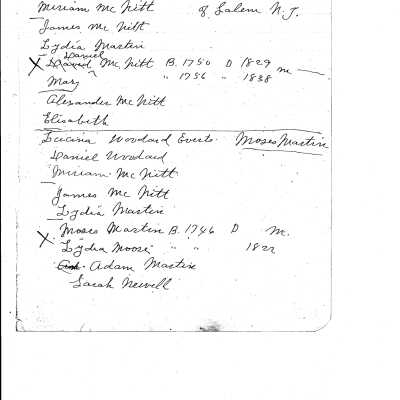 Miriam Mc Nitt of Salem N.J.
James Mc Nitt
Lydia Martin
Daniel
X David Mc Nitt B. 1750 D 1829 m
Mary " 1756 " 1838
Alexander Mc Nitt
Elisabeth
Lucina Woodard Everts. Moses Martin
Daniel Woodard
Miriam Mc Nitt
James Mc Nitt
Lydia Martin
X Moses Martin B. 1746 D M.
Lydia Moore " " 1822
Adam Martin
Sarah Newell